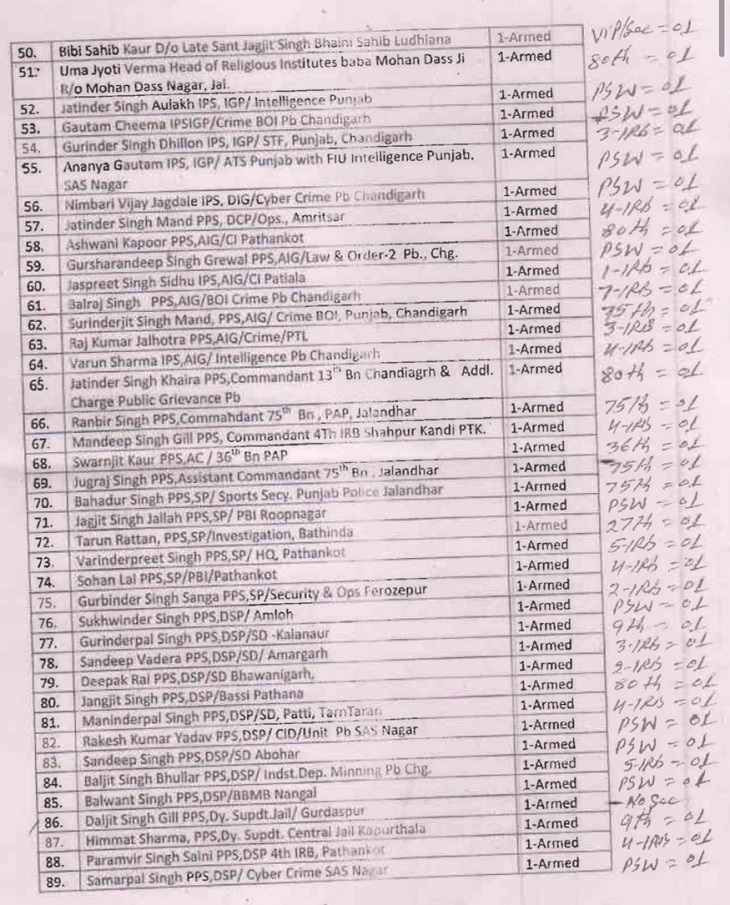 50. Bibi Sahib Kaur D/o Late Sant Jagjit Singh Bhaini Sahib Ludhiana 1-Armed VIP/Sec = 01
51. Uma Jyoti Verma Head of Religious Institutes baba Mohan Dass Ji 1-Armed 80th = 01
R/o Mohan Dass Nagar, Jal.
52. Jatinder Singh Aulakh IPS, IGP/ Intelligence Punjab 1-Armed PSW = 01
53. Gautam Cheema IPSIGP/Crime BOI Pb Chandigarh 1-Armed PSW = 01
54. Gurinder Singh Dhillon IPS, IGP/ STF, Punjab, Chandigarh 1-Armed 3-IRB = 01
55. Ananya Gautam IPS, IGP/ ATS Punjab with FIU Intelligence Punjab, 1-Armed PSW = 01
SAS Nagar
56. Nimbari Vijay Jagdale IPS, DIG/Cyber Crime Pb Chandigarh 1-Armed PSW = 01
57. Jatinder Singh Mand PPS, DCP/Ops., Amritsar 1-Armed 4-IRB = 01
58. Ashwani Kapoor PPS,AIG/CI Pathankot 1-Armed 80th = 01
59. Gursharandeep Singh Grewal PPS,AIG/Law & Order-2 Pb., Chg. 1-Armed PSW = 01
60. Jaspreet Singh Sidhu IPS,AIG/CI Patiala 1-Armed 1-IRB = 01
61. Balraj Singh PPS,AIG/BOI Crime Pb Chandigarh 1-Armed 7-IRB = 01
62. Surinderjit Singh Mand, PPS,AIG/ Crime BOI, Punjab, Chandigarh 1-Armed 75th = 01
63. Raj Kumar Jalhotra PPS,AIG/Crime/PTL 1-Armed 3-IRB = 01
64. Varun Sharma IPS,AIG/ Intelligence Pb Chandigarh 1-Armed 4-IRB = 01
65. Jatinder Singh Khaira PPS,Commandant 13th Bn Chandiagrh & Addl. 1-Armed 80th = 01
Charge Public Grievance Pb
66. Ranbir Singh PPS,Commahdant 75th Bn , PAP, Jalandhar 1-Armed 75th = 01
67. Mandeep Singh Gill PPS, Commandant 4Th IRB Shahpur Kandi PTK. 1-Armed 4-IRB = 01
68. Swarnjit Kaur PPS,AC / 36th Bn PAP 1-Armed 36th = 01
69. Jugraj Singh PPS,Assistant Commandant 75th Bn , Jalandhar 1-Armed 75th = 01
70. Bahadur Singh PPS,SP/ Sports Secy. Punjab Police Jalandhar 1-Armed 75th = 01
71. Jagjit Singh Jallah PPS,SP/ PBI Roopnagar 1-Armed PSW = 01
72. Tarun Rattan, PPS,SP/Investigation, Bathinda 1-Armed 27th = 01
73. Varinderpreet Singh PPS,SP/ HQ, Pathankot 1-Armed 5-IRB = 01
74. Sohan Lal PPS,SP/PBI/Pathankot 1-Armed 4-IRB = 01
75. Gurbinder Singh Sanga PPS,SP/Security & Ops Ferozepur 1-Armed 2-IRB = 01
76. Sukhwinder Singh PPS,DSP/ Amloh 1-Armed PSW = 01
77. Gurinderpal Singh PPS,DSP/SD -Kalanaur 1-Armed 9th = 01
78. Sandeep Vadera PPS,DSP/SD/ Amargarh 1-Armed 3-IRB = 01
79. Deepak Rai PPS,DSP/SD Bhawanigarh, 1-Armed 2-IRB = 01
80. Jangjit Singh PPS,DSP/Bassi Pathana 1-Armed 80th = 01
81. Maninderpal Singh PPS,DSP/SD, Patti, TarnTaran 1-Armed 4-IRB = 01
82. Rakesh Kumar Yadav PPS,DSP/ CID/Unit Pb SAS Nagar 1-Armed PSW = 01
83. Sandeep Singh PPS,DSP/SD Abohar 1-Armed PSW = 01
84. Baljit Singh Bhullar PPS,DSP/ Indst.Dep. Minning Pb Chg. 1-Armed 5-IRB = 01
85. Balwant Singh PPS,DSP/BBMB Nangal 1-Armed PSW = 01
86. Daljit Singh Gill PPS,Dy. Supdt.Jail/ Gurdaspur 1-Armed No Sec
87. Himmat Sharma, PPS,Dy. Supdt. Central Jail Kapurthala 1-Armed 9th = 01
88. Paramvir Singh Saini PPS,DSP 4th IRB, Pathankot 1-Armed 4-IRB = 01
89. Samarpal Singh PPS,DSP/ Cyber Crime SAS Nagar 1-Armed PSW = 01